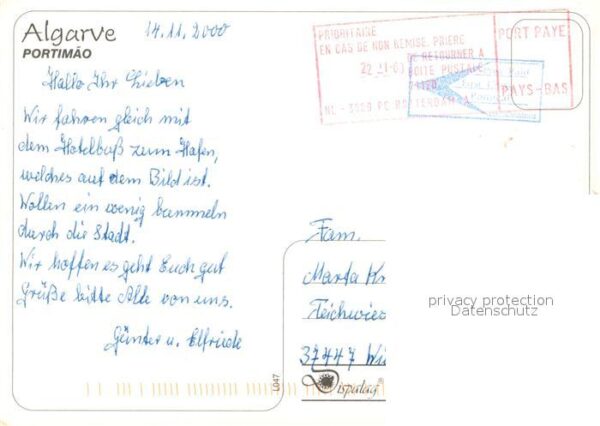 Algarve
PORTIMÃO
14.11.2000
Hallo Ihr Lieben
Wir fahren gleich mit
dem Hotelbuß zum Hafen,
welches auf dem Bild ist.
Wollen ein wenig bummeln
durch die Stadt.
Wir hoffen es geht Euch gut
Grüße bitte Alle von uns.
Günter u. Elfriede
PRIORITAIRE
EN CAS DE NON REMISE, PRIERE
DE RETOURNER A
BOITE POSTALE
NL - PC ROTTERDAM
PORT PAYE
PAYS-BAS
Fam.
Marta Kr
Teichwies
37447 Wi
privacy protection
Datenschutz
L047
Dispalag®